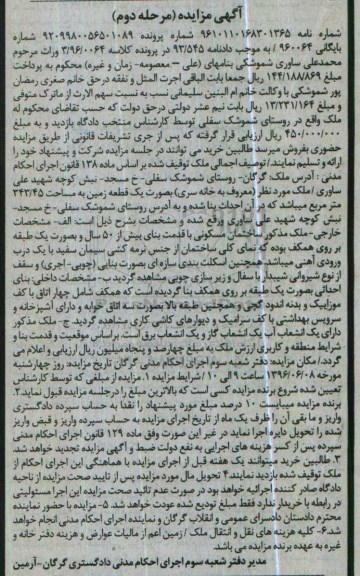 آگهی مزایده (مرحله دوم)
شماره نامه ۹۶۱۰۱۱۰۱۶۸۳۰۱۳۶۵ شماره پرونده ۹۲۰۹۹۸۰۰۵۶۵۰۱۰۸۹ شماره
بایگانی ۹۶۰۰۶۴ / به موجب دادنامه ۹۳/۵۴۵ در پرونده کلاسه ۳/۹۶/۰۰۶۴ وراث مرحوم
محمدعلی ساوری شموشکی بنامهای (علی – معصومه- زمان و غیره) محکوم به پرداخت
مبلغ ۱۴۴/۱۸۸/۸۶۹ ریال جمعا بابت الباقی اجرت المثل و نفقه درحق خانم صغری رمضان
پور شموشکی با وکالت خانم ام البنین سلیمانی نسب به نسبت سهم الارث از ماترک متوفی
و مبلغ ۱۳/۲۳۱/۱۶۴ ریال بابت نیم عشر دولتی درحق دولت که حسب تقاضای محکوم له
ملک واقع در روستای شموشک سفلی توسط کارشناس منتخب دادگاه بازدید و به مبلغ
۴۵۰/۰۰۰/۰۰۰ ریال ارزیابی قرار گرفته که پس از جری تشریفات قانونی از طریق مزایده
حضوری بفروش میرسد طالبین خرید می توانند در جلسه مزایده شرکت و پیشنهاد خود را
ارائه و تسلیم نمایند/ توصیف اجمالی ملک توقیف شده بر اساس ماده ۱۳۸ قانون اجرای احکام
مدنی : آدرس ملک: گرگان- روستای شموشک سفلی-خ مسجد- نبش کوچه شهید علی
ساوری / ملک مورد نظر (معروف به خانه سری) بصورت یک قطعه زمین به مساحت ۲۴۳/۴۵
متر مربع میباشد که در آن احداث بنا شده و به آدرس روستای شموشک سفلی-خ مسجد-
نبش کوچه شهید علی ساوری واقع شده و مشخصات بشرح ذیل است: الف- مشخصات
خارجی- ملک مذکور ساختمان مسکونی با قدمت بنای پیش از ۵۰ سال و بصورت یک طبقه
بر روی همکف بوده که نمای کلی ساختمان از جنس نرمه کشی سیمان سفید با یک درب
ورودی آهنی میباشد. همچنین اسکلت بندی سازه ای بصورت بنایی (چوبی-آجری) و سقف
از نوع شیروانی شیبدار با سفال و زیر سازی چوبی مشاهده گردید. ب- مشخصات داخلی: بنای
احداثی بصورت یک طبقه بر روی همکف بنا گردیده است که همکف شامل چهار اتاق با کف
موزاییک و بدنه اندود گچی و همچنین طبقه بالا بصورت سه اتاق خوابه و دارای آشپزخانه و
سرویس بهداشتی با کف سرامیک و دیوارهای کاشی کاری مشاهده گردید. ج- ملک مذکور
دارای یک انشعاب آب یک انشعاب گاز و یک انشعاب برق است. براساس موقعیت و قدمت بنا و
شرایط منطقه و کاربری ارزش ملک به مبلغ چهارصد و پنجاه میلیون ریال ارزیابی و اعلام می
گردد./ مکان مزایده: دفتر شعبه سوم اجرای احکام مدنی گرگان تاریخ مزایده: روز چهارشنبه
مورخه ۱۳۹۶/۰۶/۰۸ ساعت ۹ الی ۱۰ / شرایط مزایده ۱. مزایده از مبلغی که توسط کارشناس
تعیین شده شروع برنده مزایده کسی است که بالاترین مبلغ را درجلسه مزایده قبول نماید ۲.
برنده مزایده میبایست ۱۰ درصد مبلغ مورد پیشنهاد را نقدا به حساب سپرده دادگستری
واریز و ما بقی آن را ظرف یک ماه از تاریخ اجرای مزایده به حساب سپرده واریز و قبض واریز
شده را تحویل دایره اجرا نماید در غیر این صورت وفق ماده ۱۲۹ قانون اجرای احکام مدنی
سپرده پس از کسر هزینه های اجرایی به نفع دولت ضبط و آگهی مزایده تجدید خواهد شد.
۳. طالبین خرید میتوانند یک هفته قبل از اجرای مزایده با هماهنگی این اجرای احکام از
ملک توقیف شده بازدید نمایند ۴. تحویل مال مورد مزایده پس از تایید صحت مزایده از ناحیه
دادگاه صادر کننده اجرائیه خواهد بود در صورت عدم تائید صحت مزایده این اجرا مسئولیتی
در رابطه با خریدار ندارد فقط مبلغ تودیع شده عودت خواهد شد. ۵- مزایده با حضور نماینده
محترم دادستان دادسرای عمومی و انقلاب گرگان و نماینده اجرای احکام مدنی انجام خواهد
شد. ۶- کلیه هزینه های نقل و انتقال ملک / زمین اعم از مالیات عوارض و هزینه دفتر خانه و
غیره به عهده برنده مزایده می باشد.
مدیر دفتر شعبه سوم اجرای احکام مدنی دادگستری گرگان-آرمین